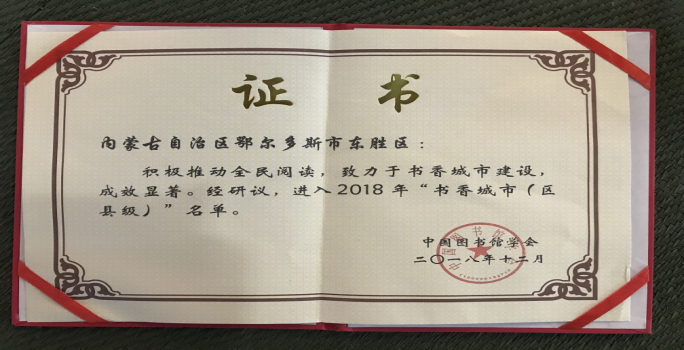 证书
内蒙古自治区鄂尔多斯市东胜区：
积极推动全民阅读，致力于书香城市建设，
成效显著。经研议，进入2018年“书香城市（区
县级）”名单。
中国图书馆学会
二〇一八年十二月